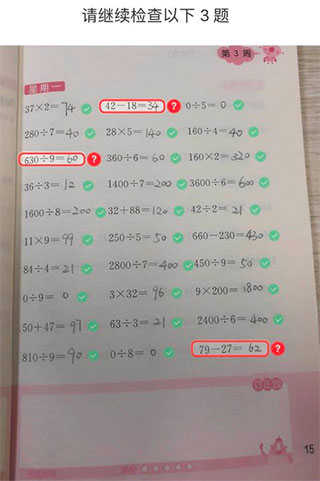 请继续检查以下 3 题
第 3 周
星期一
37×2=74 42-18=34 0÷5=0
280÷7=40 28×5=140 160÷4=40
630÷9=60 360÷6=60 160×2=320
36÷3=12 1400÷7=200 3600÷6=600
1600÷8=200 32+88=120 42÷2=21
11×9=99 250÷5=50 660-230=430
84÷4=21 2800÷7=400 450÷9=50
0÷9=0 3×32=96 9×200=1800
50+47=97 63÷3=21 2400÷6=400
810÷9=90 0÷8=0 79-27=62
15